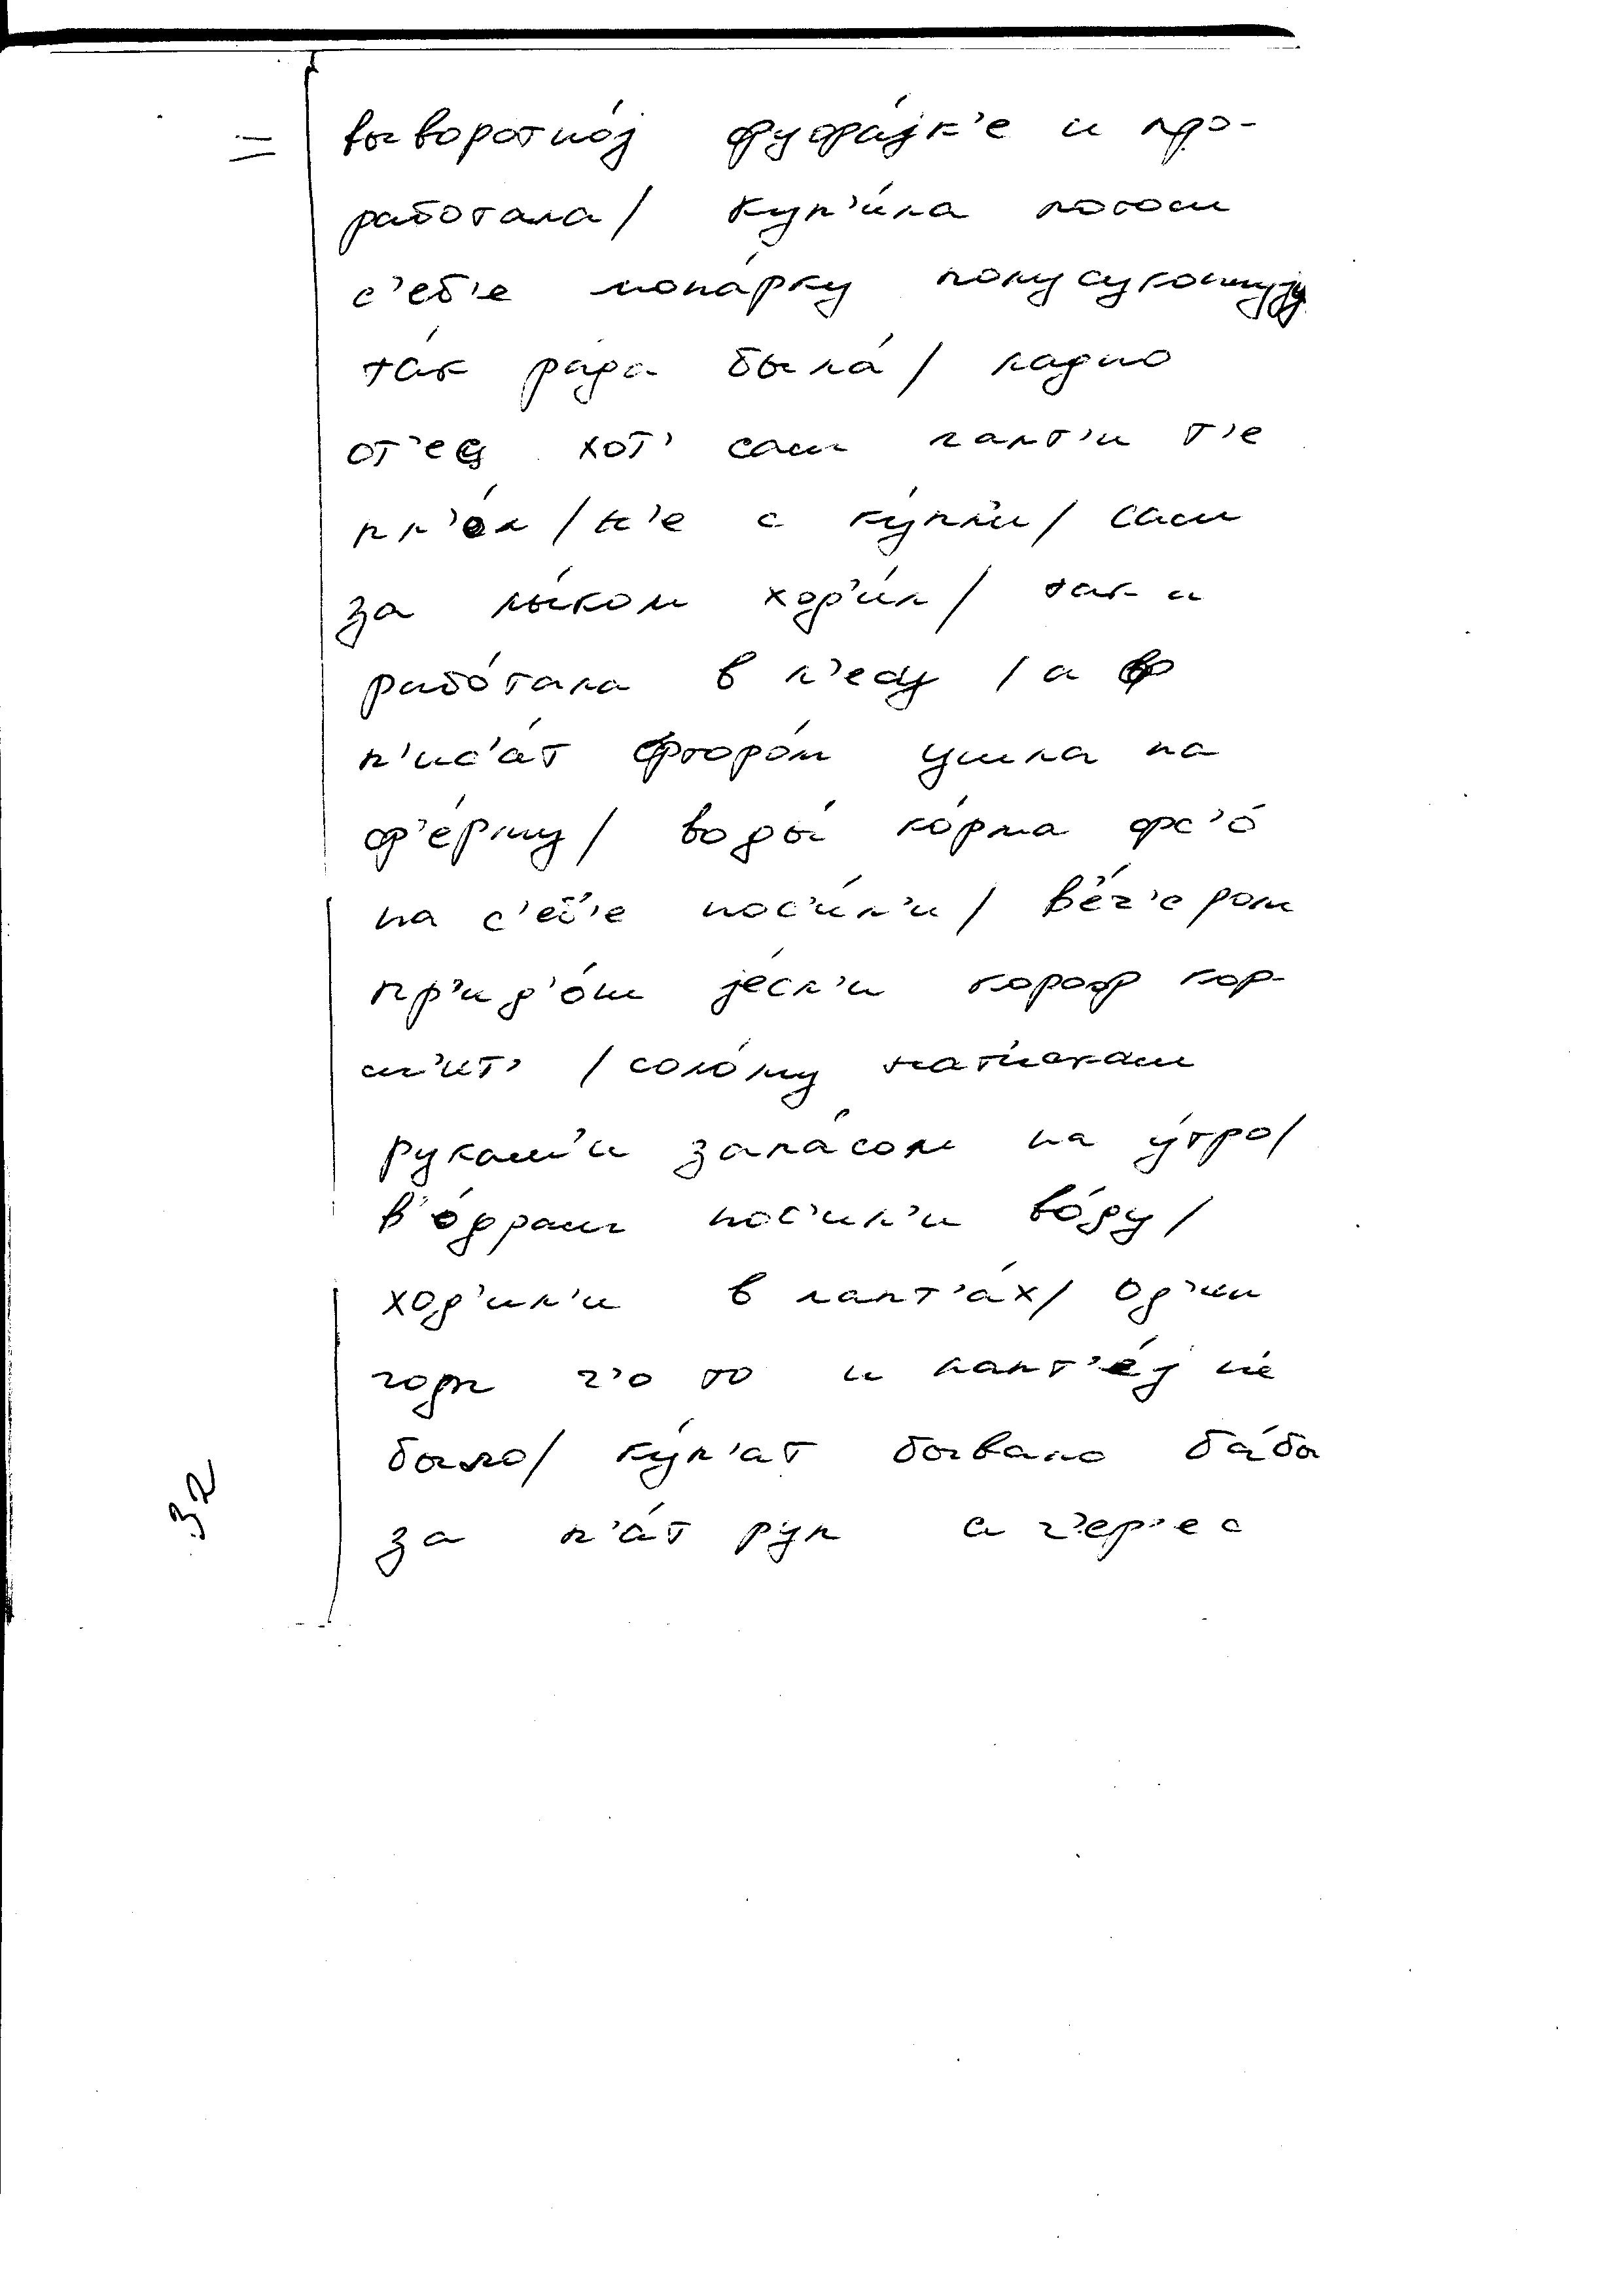 =
выворотно́j фуфа́jк'е и про-
работала/ куп'и́ла потом
с'еб'е мона́рку полусуконнуjу
та́к ра́да была́/ ладно
от'ец хот' сам лапт'и т'е
пл'о́л /н'е с ку́пл'и/ сам
за лы́ком ход'и́л/ так и
рабо́тала в л'есу /а в
п'ис'а́т фторо́м ушла на
ф'е́рму/ воды́ ко́рма фс'о́
на с'еб'е нос'и́л'и/ в'е́ч'ером
пр'ид'о́ш jе́сл'и короф кор-
м'ит' /соло́му нат'искаш
рукам'и запа́сом на у́тро/
в'о́драм нос'ил'и во́ду/
ход'ил'и в лапт'а́х/ од'ин
годы ч'о то и лапт'е́j н'е
было/ ку́п'ат бывало ба́бы
за п'а́т руп а ч'ер'ес
32